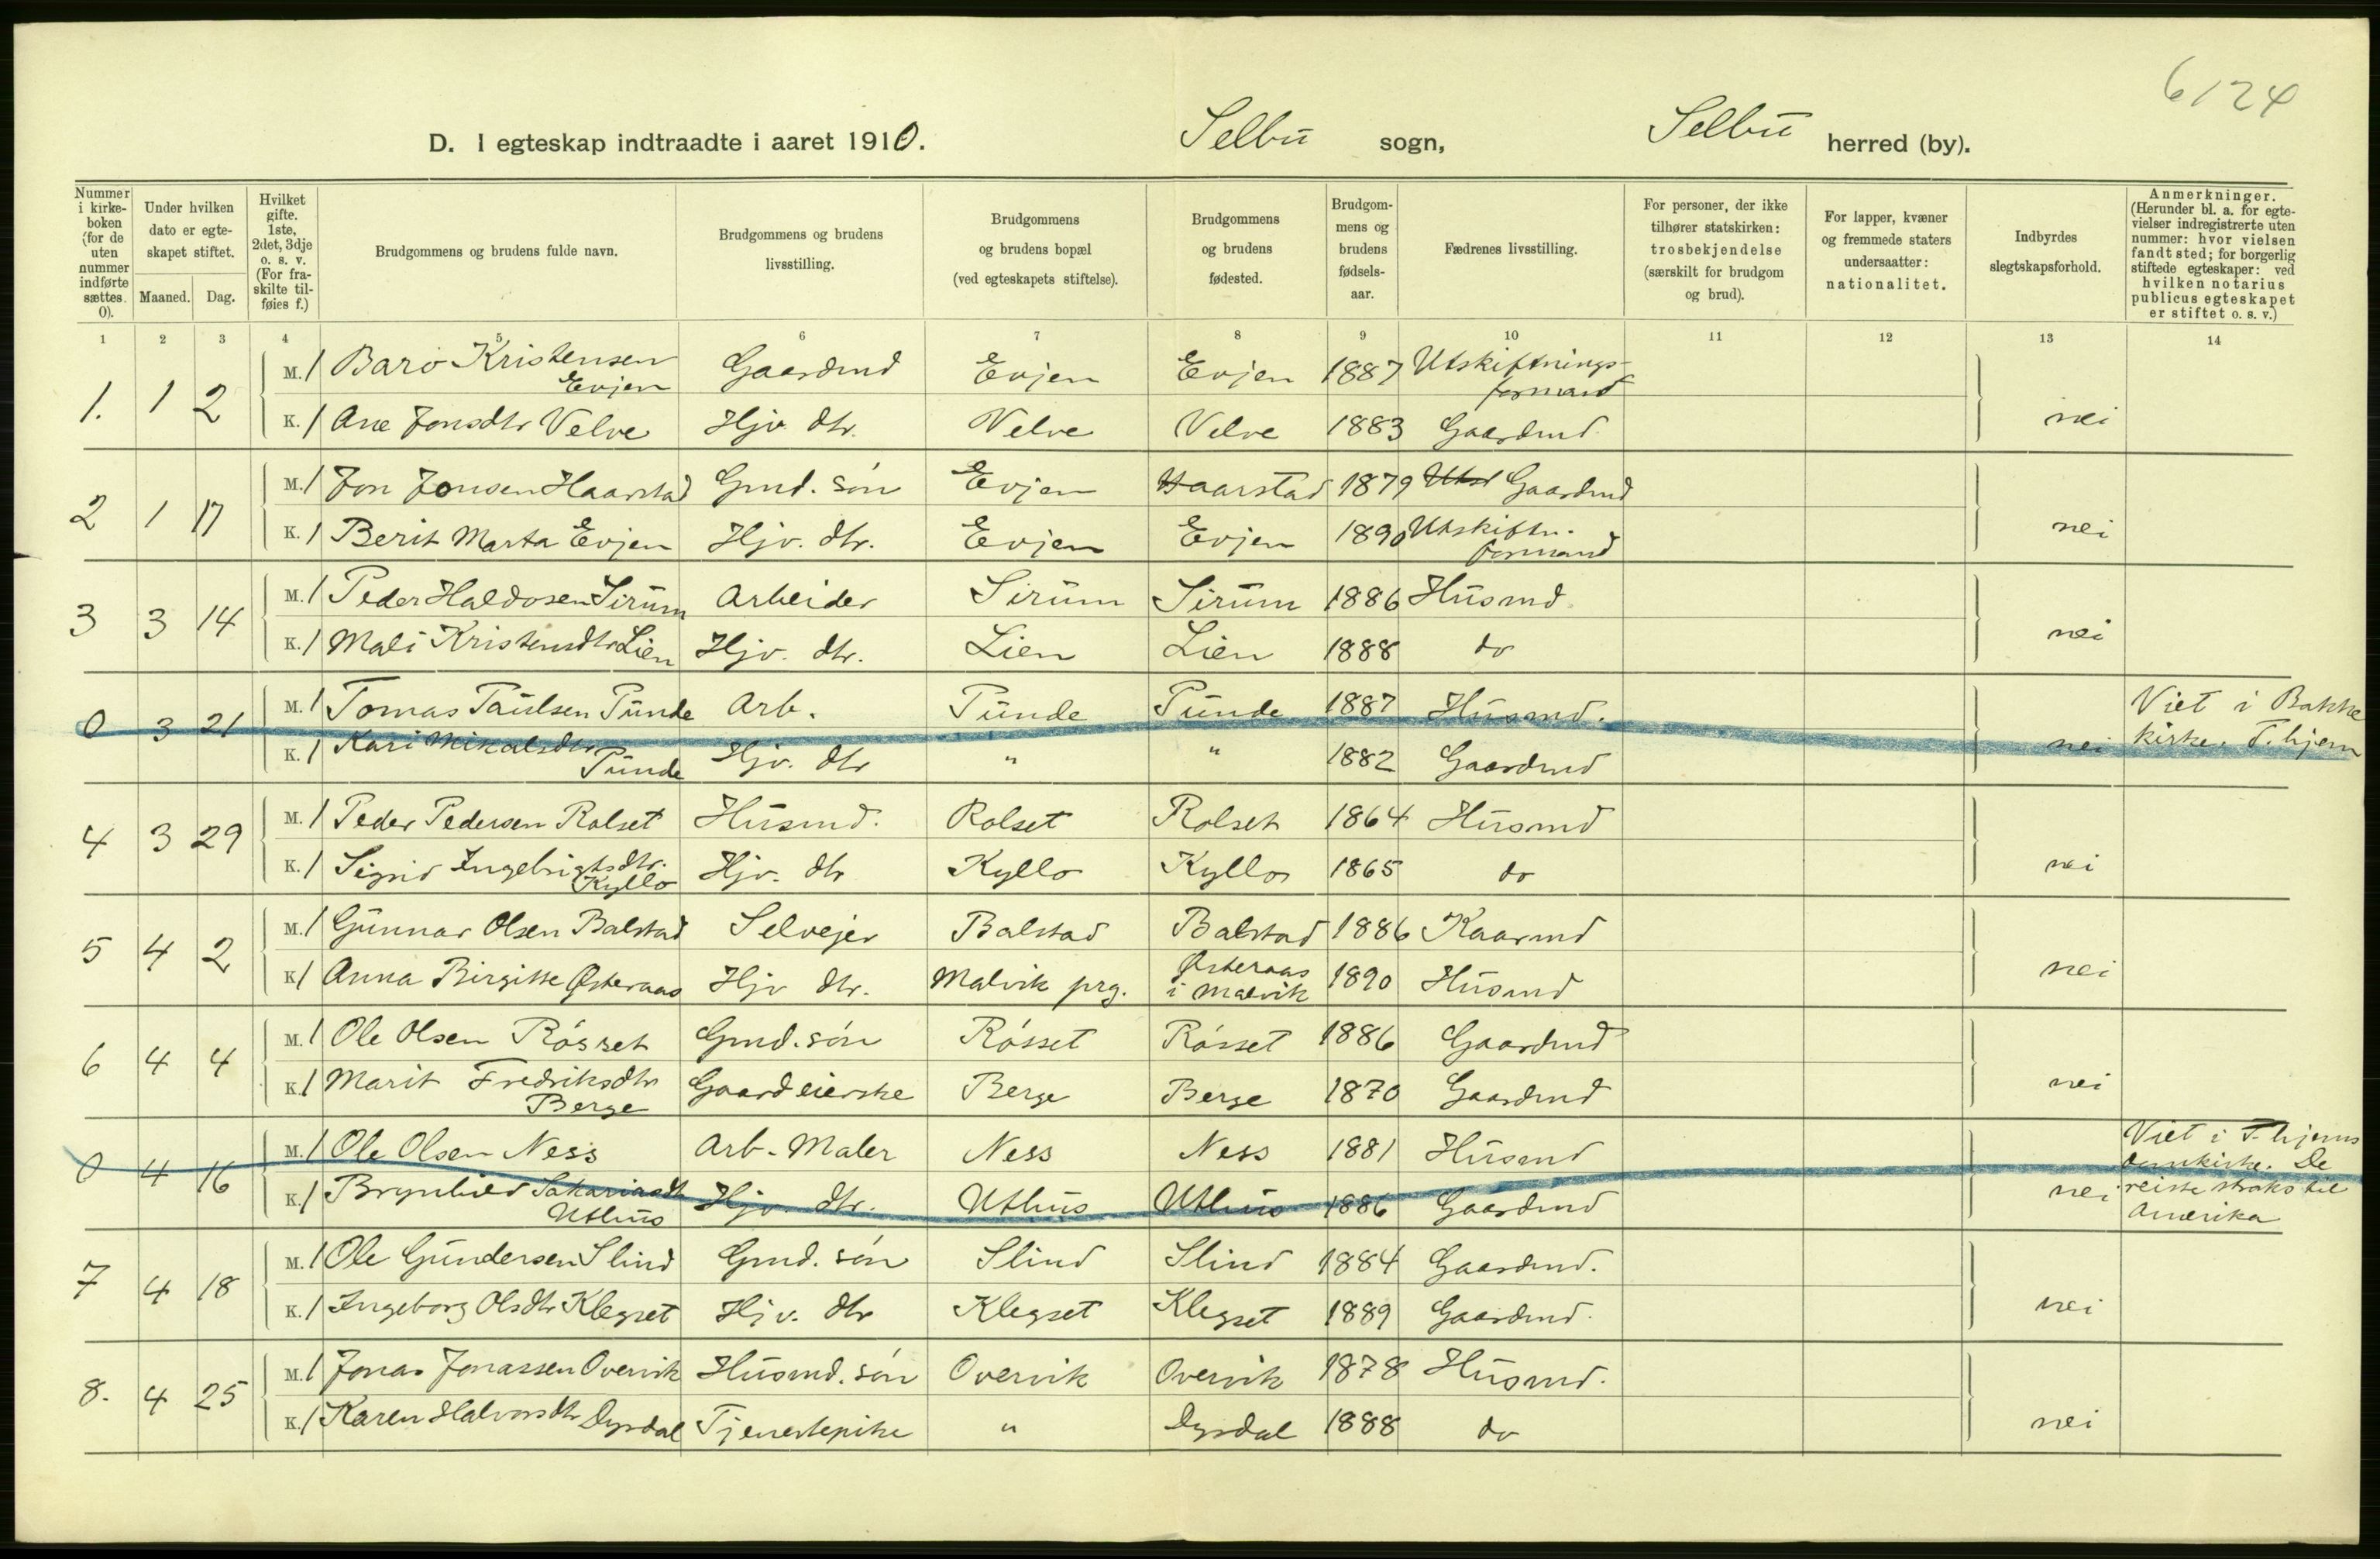 6124
D. I egteskap indtraadte i aaret 1910. Selbu sogn, Selbu herred (by).
Nummer i kirke-boken (for de uten nummer indførte sættes 0).
Under hvilken dato er egte-skapet stiftet.
Maaned. Dag.
Hvilket gifte. 1ste, 2det, 3dje o. s. v. (For fra-skilte til-føies f.)
Brudgommens og brudens fulde navn.
Brudgommens og brudens livsstilling.
Brudgommens og brudens bopæl (ved egteskapets stiftelse).
Brudgommens og brudens fødested.
Brudgom-mens og brudens fødsels-aar.
Fædrenes livsstilling.
For personer, der ikke tilhører statskirken: trosbekjendelse (særskilt for brudgom og brud).
For lapper, kvæner og fremmede staters undersaatter: nationalitet.
Indbyrdes slegtskapsforhold.
Anmerkninger. (Herunder bl. a. for egte-vielser indregistrerte uten nummer: hvor vielsen fandt sted; for borgerlig stiftede egteskaper: ved hvilken notarius publicus egteskapet er stiftet o. s. v.)
1 2 3 4 5 6 7 8 9 10 11 12 13 14
1. 1 2 M. 1 Baro Kristensen Evjen Gaardmd Evjen Evjen 1887 Utskiftnings-formand
K. 1 Ane Jonsdtr Velve Hjv. dtr. Velve Velve 1883 Gaardmd. nei
2 1 17 M. 1 Jon Jonsen Haarstad Gmd. søn Evjen Haarstad 1879 Utsk Gaardmd
K. 1 Berit Marta Evjen Hjv. dtr. Evjen Evjen 1890 Utskiftn. formand nei
3 3 14 M. 1 Peder Haldosen Sirum Arbeider Sirum Sirum 1886 Husmd.
K. 1 Mali Kristensdtr Lien Hjv. dtr. Lien Lien 1888 do nei
0 3 21 M. 1 Tomas Paulsen Punde Arb. Punde Punde 1887 Husmd. Viet i Bakke
K. 1 Kari Mikalsdtr Punde Hjv. dtr " " 1882 Gaardmd nei kirke. T.hjem
4 3 29 M. 1 Peder Pedersen Rolset Husmd. Rolset Rolset 1864 Husmd
K. 1 Sigrid Ingebrigtsdtr. Kyllo Hjv. dtr Kyllo Kyllo 1865 do nei
5 4 2 M. 1 Gunnar Olsen Balstad Selvejer Balstad Balstad 1886 Kaarmd
K. 1 Anna Birgitte Østeraas Hjv dtr. Malvik prg. Østeraas i Malvik 1890 Husmd nei
6 4 4 M. 1 Ole Olsen Røsset Gmd. søn Røsset Røsset 1886 Gaardmd
K. 1 Marit Fredriksdtr Berge Gaardeierske Berge Berge 1870 Gaardmd nei
0 4 16 M. 1 Ole Olsen Ness Arb. Maler Ness Ness 1881 Husmd Viet i T.hjems domkirke. De
K. 1 Brynhild Sakariasdtr Uthus Hjv. dtr. Uthus Uthus 1886 Gaardmd nei reiste straks til Amerika
7 4 18 M. 1 Ole Gundersen Slind Gmd. søn Slind Slind 1884 Gaardmd.
K. 1 Ingeborg Olsdtr Klegset Hjv. dtr Klegset Klegset 1889 Gaardmd. nei
8. 4 25 M. 1 Jonas Jonassen Overvik Husmd. søn Overvik Overvik 1878 Husmd.
K. 1 Karen Halvorsdtr Dyrdal Tjenestepike " Dyrdal 1888 do nei